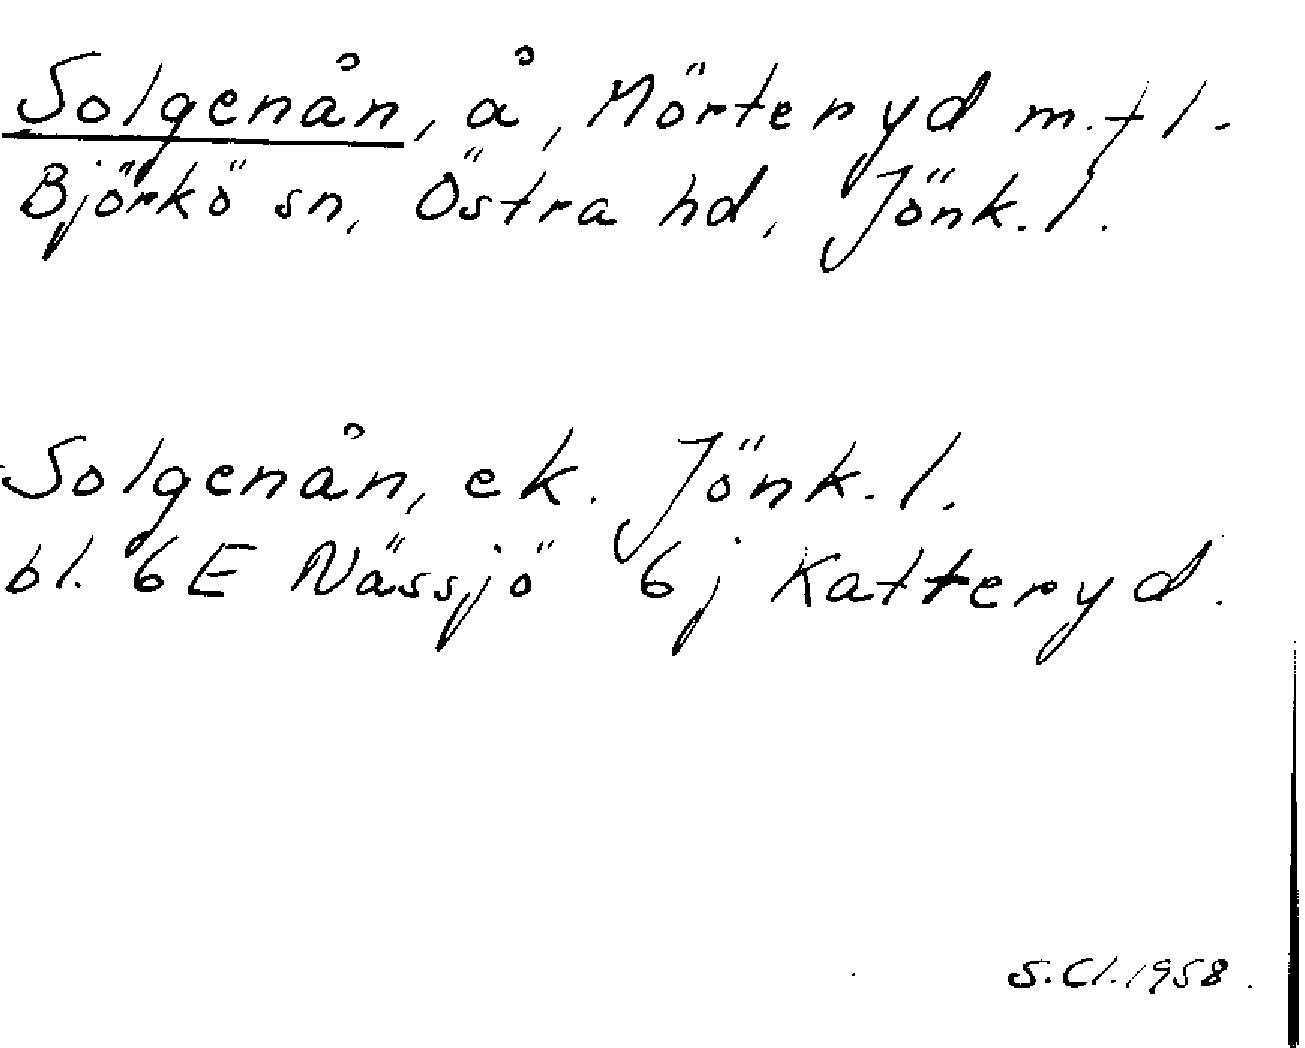 Solgenån, å, Mörteryd m.fl.
Björkö sn, Östra hd, Jönk.l.
Solgenån, ek. Jönk.l.
bl. 6E Nässjö 6j Katteryd.
S.Cl.1958.